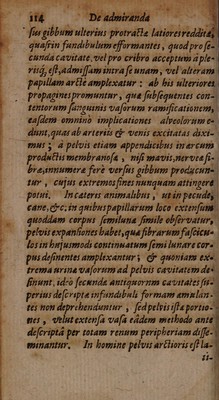 114 De admiranda
sus gibbum ulterius protractæ latiores redditæ,
quasi in fundibulum efformantes, quod pro se-
cunda cavitate, vel pro cribro acceptum à ple-
risq́; est, admissam intra se unam, vel alteram
papillam arctè amplexantur : ab his ulteriores
propagines promuntur, quæ subsequentes con-
tentorum sanguinis vasorum ramificationem,
easdem omninò implicationes alveolorum e-
dunt, quas ab arteriis & venis excitatas dixi-
mus ; a pelvis etiam appendicibus in arcum
productis membranosa, nisi mavis, nerveæ fi-
bræ, innumeræ ferè versus gibbum producun-
tur, cujus extremos fines nunquam attingere
potui. In cæteris animalibus, ut in pecude,
cane, &c. in quibus papillarum loco extensum
quoddam corpus semilunæ simile observatur,
pelvis expansiones habet, quæ fibrarum fascicu-
los in hujusmodi continuatum semi lunare cor-
pus desinentes amplexantur ; & quoniam ex-
trema urina vasorum ad pelvis cavitatem de-
sinunt, idcò secundæ antiquorum cavitates su-
perius descriptæ infundibuli formam æmulan-
tes non deprehenduntur, sed pelvis istæ portio-
nes, velut extensa vasa eâdem methodo ante
descriptâ per totam renum peripheriam disse-
minantur. In homine pelvis arctioris est la-
ti-